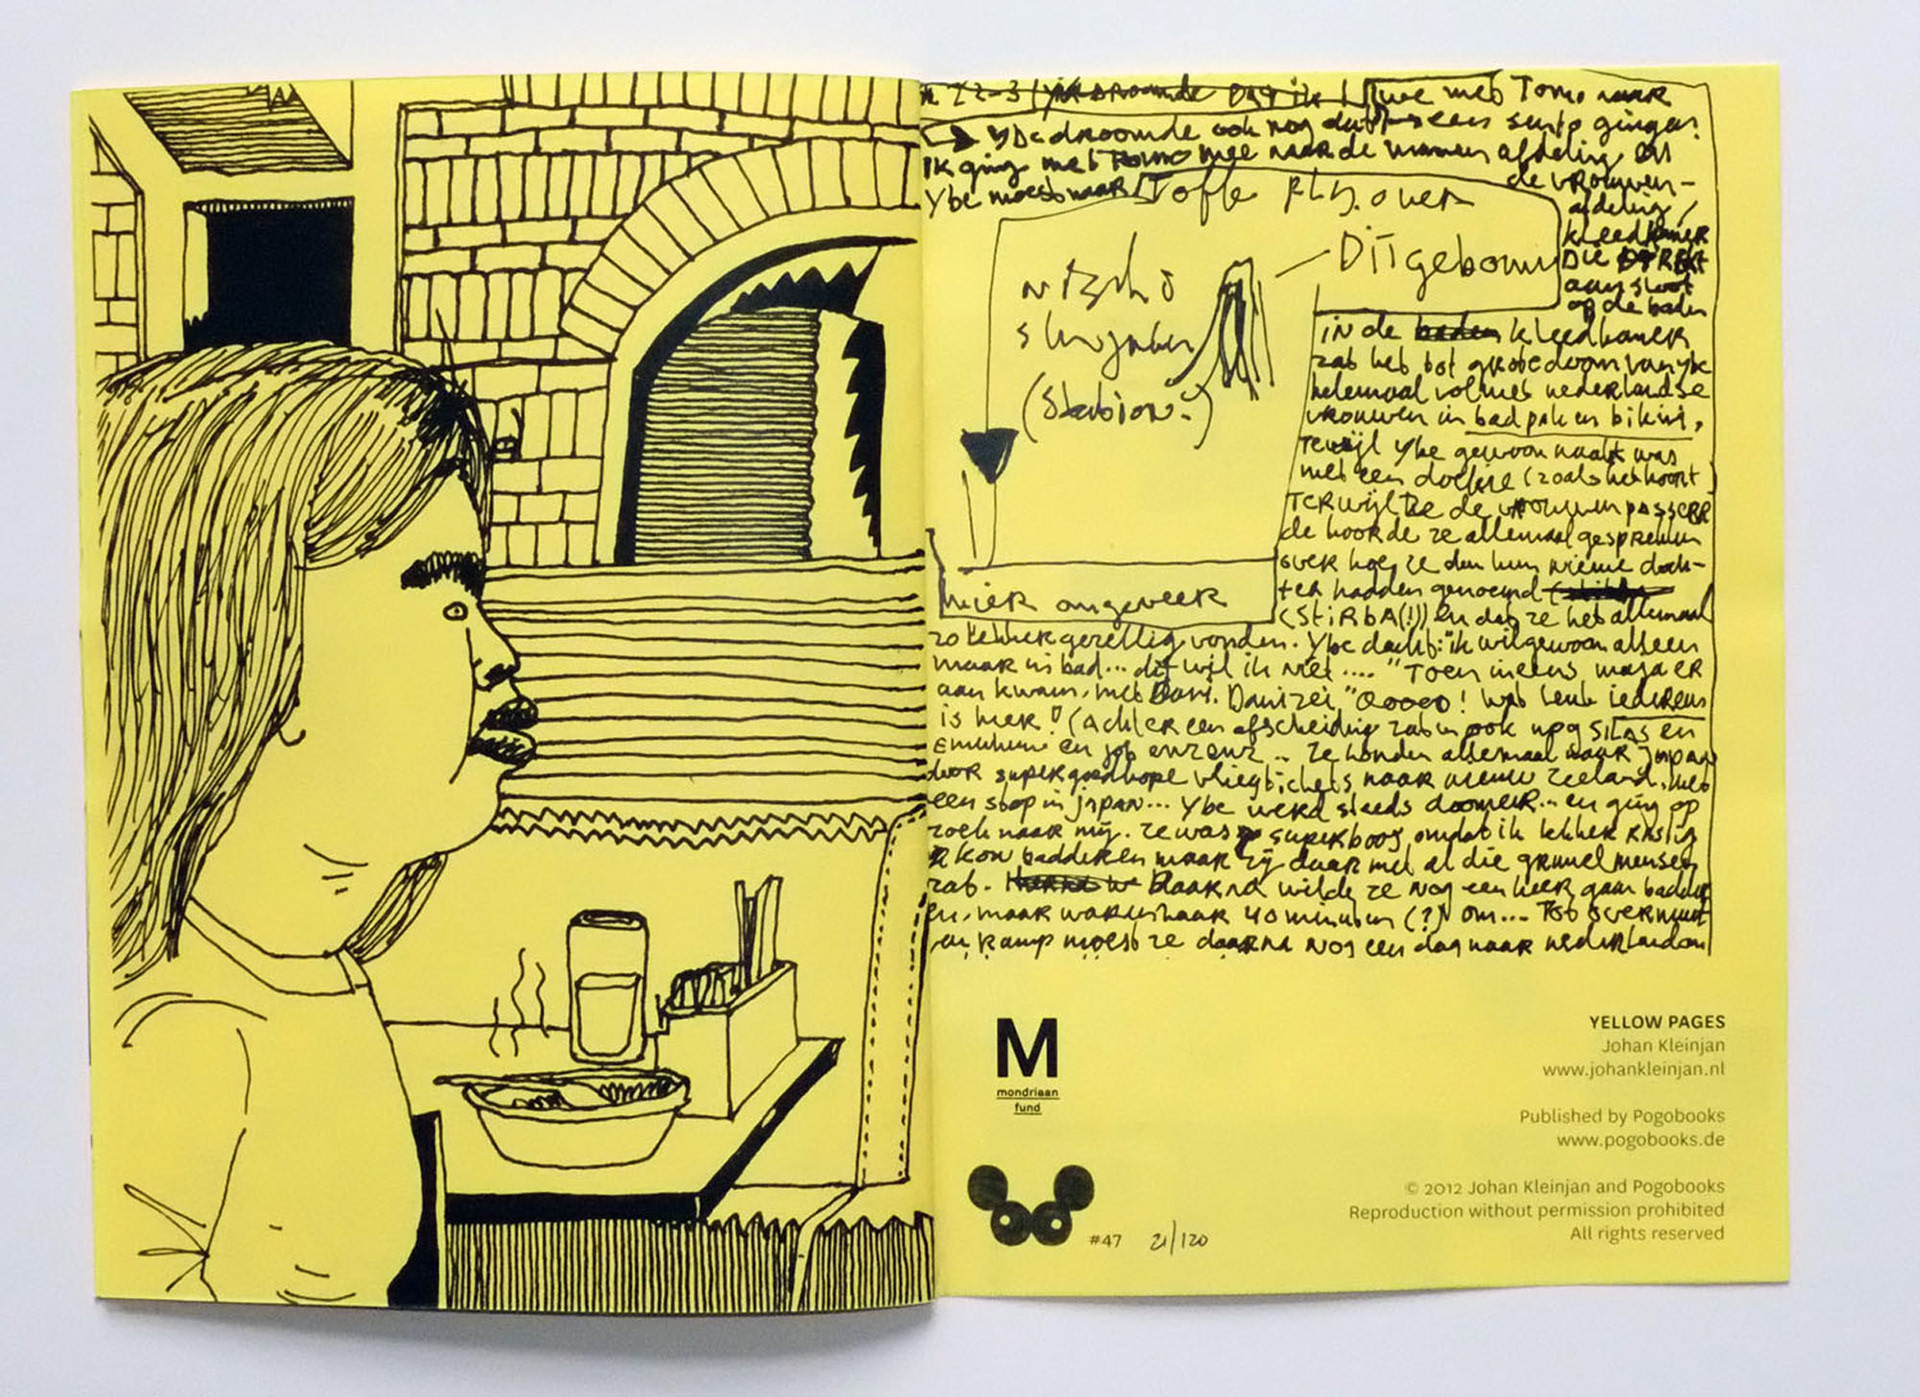 we met Tomo naar
Ybe droomde ook nog dat we een sento gingen!
ik ging met Tomo mee naar de mannen afdeling en
Ybe moest naar de vrouwen-
afdeling /
kleedkamer
DIE DIREKT
aansloot
op de baden
Toffe fly-over
Dit gebouw
(Station.)
hier ongeveer
in de kleedkamer
zat het tot grote doom van ybe
helemaal vol met nederlandse
vrouwen in badpak en bikini,
terwijl Ybe gewoon naakt was
met een doekje (zoals het hoort)
Terwijl ze de vrouwen passeer
de hoorde ze allemaal gesprekken
over hoe ze dan hun nieuwe doch-
ter hadden genoemd
(StiRbA(!)) en dat ze het allemaal
zo lekker gezellig vonden. Ybe dacht: "ik wil gewoon alleen
maar in bad... dit wil ik niet ...." Toen ineens maja er
aan kwam, met Dani. Dani zei "Ooooo! wat leuk iedereen
is hier! (achter een afscheiding zaten ook nog SILAS en
en job enzenz... ze konden allemaal naar Japan
door supergoedkope vliegtickets naar nieuw zeeland, met
een stop in japan... Ybe werd steeds doomer... en ging op
zoek naar mij. ze was superboos omdat ik lekker rustig
kon badderen maar zij daar met al die gruwel mensen
zat. Daarna wilde ze nog een keer gaan badder
en, maar waren haar 40 minuten (?) om... Tot overmaat
van ramp moest ze daarna nog een dag naar nederland om
M
mondriaan
fund
#47 21/120
YELLOW PAGES
Johan Kleinjan
www.johankleinjan.nl
Published by Pogobooks
www.pogobooks.de
© 2012 Johan Kleinjan and Pogobooks
Reproduction without permission prohibited
All rights reserved